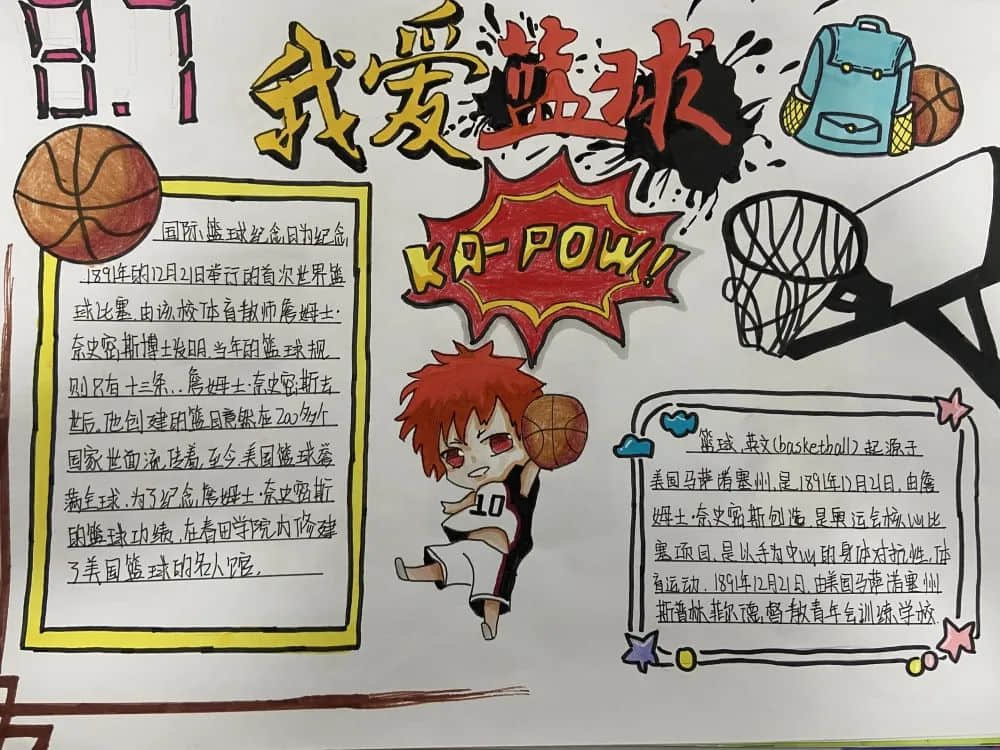 8.7
我爱篮球
KA-POW!
国际篮球纪念日为纪念
1891年的12月21日举行的首次世界篮
球比赛.由该校体育教师詹姆士·
奈史密斯博士发明.当年的篮球规
则只有十三条..詹姆士·奈史密斯去
世后.他创建的篮目竟然在200多个
国家世面流传着,至今.美国篮球誉
满全球.为了纪念詹姆士·奈史密斯
的篮球功绩.在春田学院内修建
了美国篮球的名人馆.
10
篮球.英文(basketball)起源于
美国马萨诸塞州.是1891年12月21日.由詹
姆士·奈史密斯创造.是奥运会核心比
赛项目.是以手为中心的身体对抗性.体
育运动.1891年12月21日.由美国马萨诸塞州
斯普林菲尔德.督教青年会训练学校.